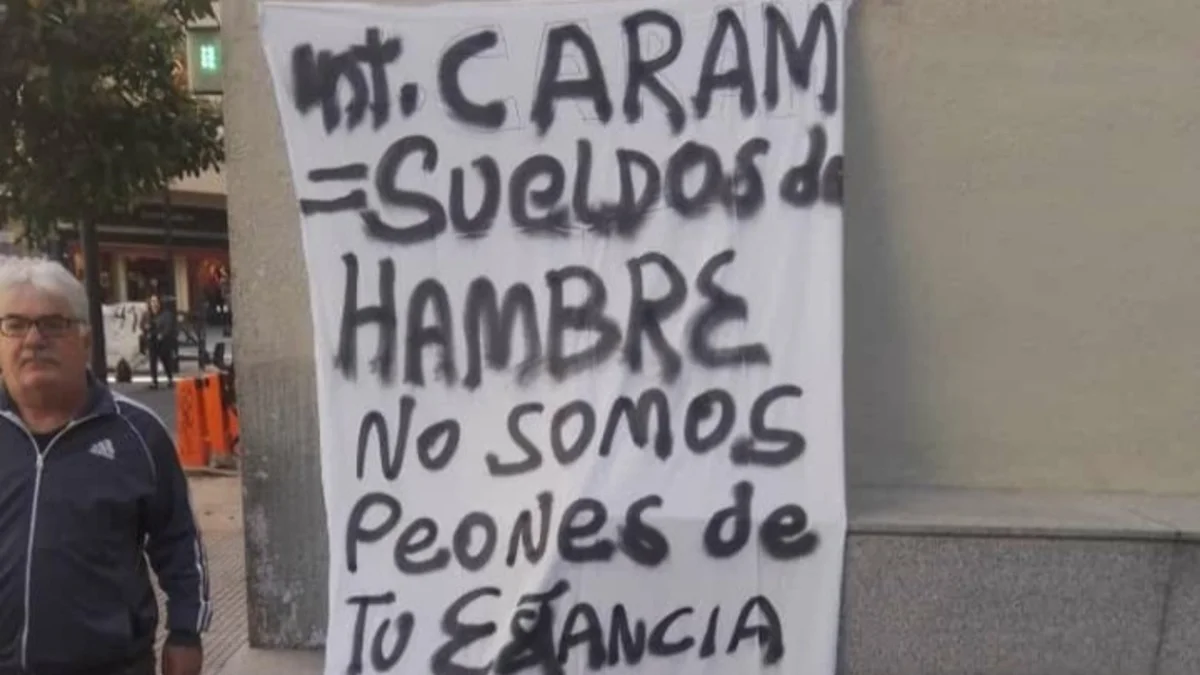 Int. CARAM
=SUeLDOS de
HAMBRE
No SOMOS
PeONes de
TU ESTANCIA